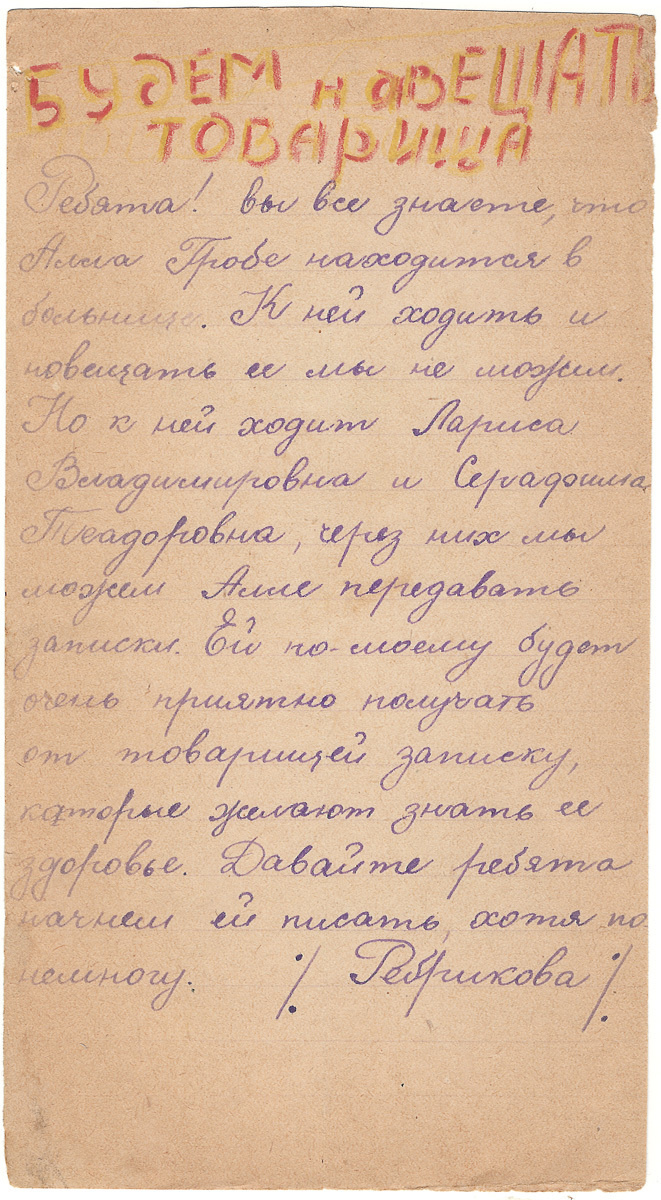 БУДЕМ нАВЕЩАТЬ
ТОВАРИЩА
Ребята! вы все знаете, что
Алла Гробе находится в
больнице. К ней ходить и
новещать ее мы не можим.
Но к ней ходит Лариса
Владимировна и Серафима
Теадоровна, через них мы
можем Алле передавать
записки. Ей по-моему будет
очень приятно получать
от товарищей записку,
каторые желают знать ее
здоровье. Давайте ребята
начнем ей писать, хотя по
немногу. /Ребрикова/